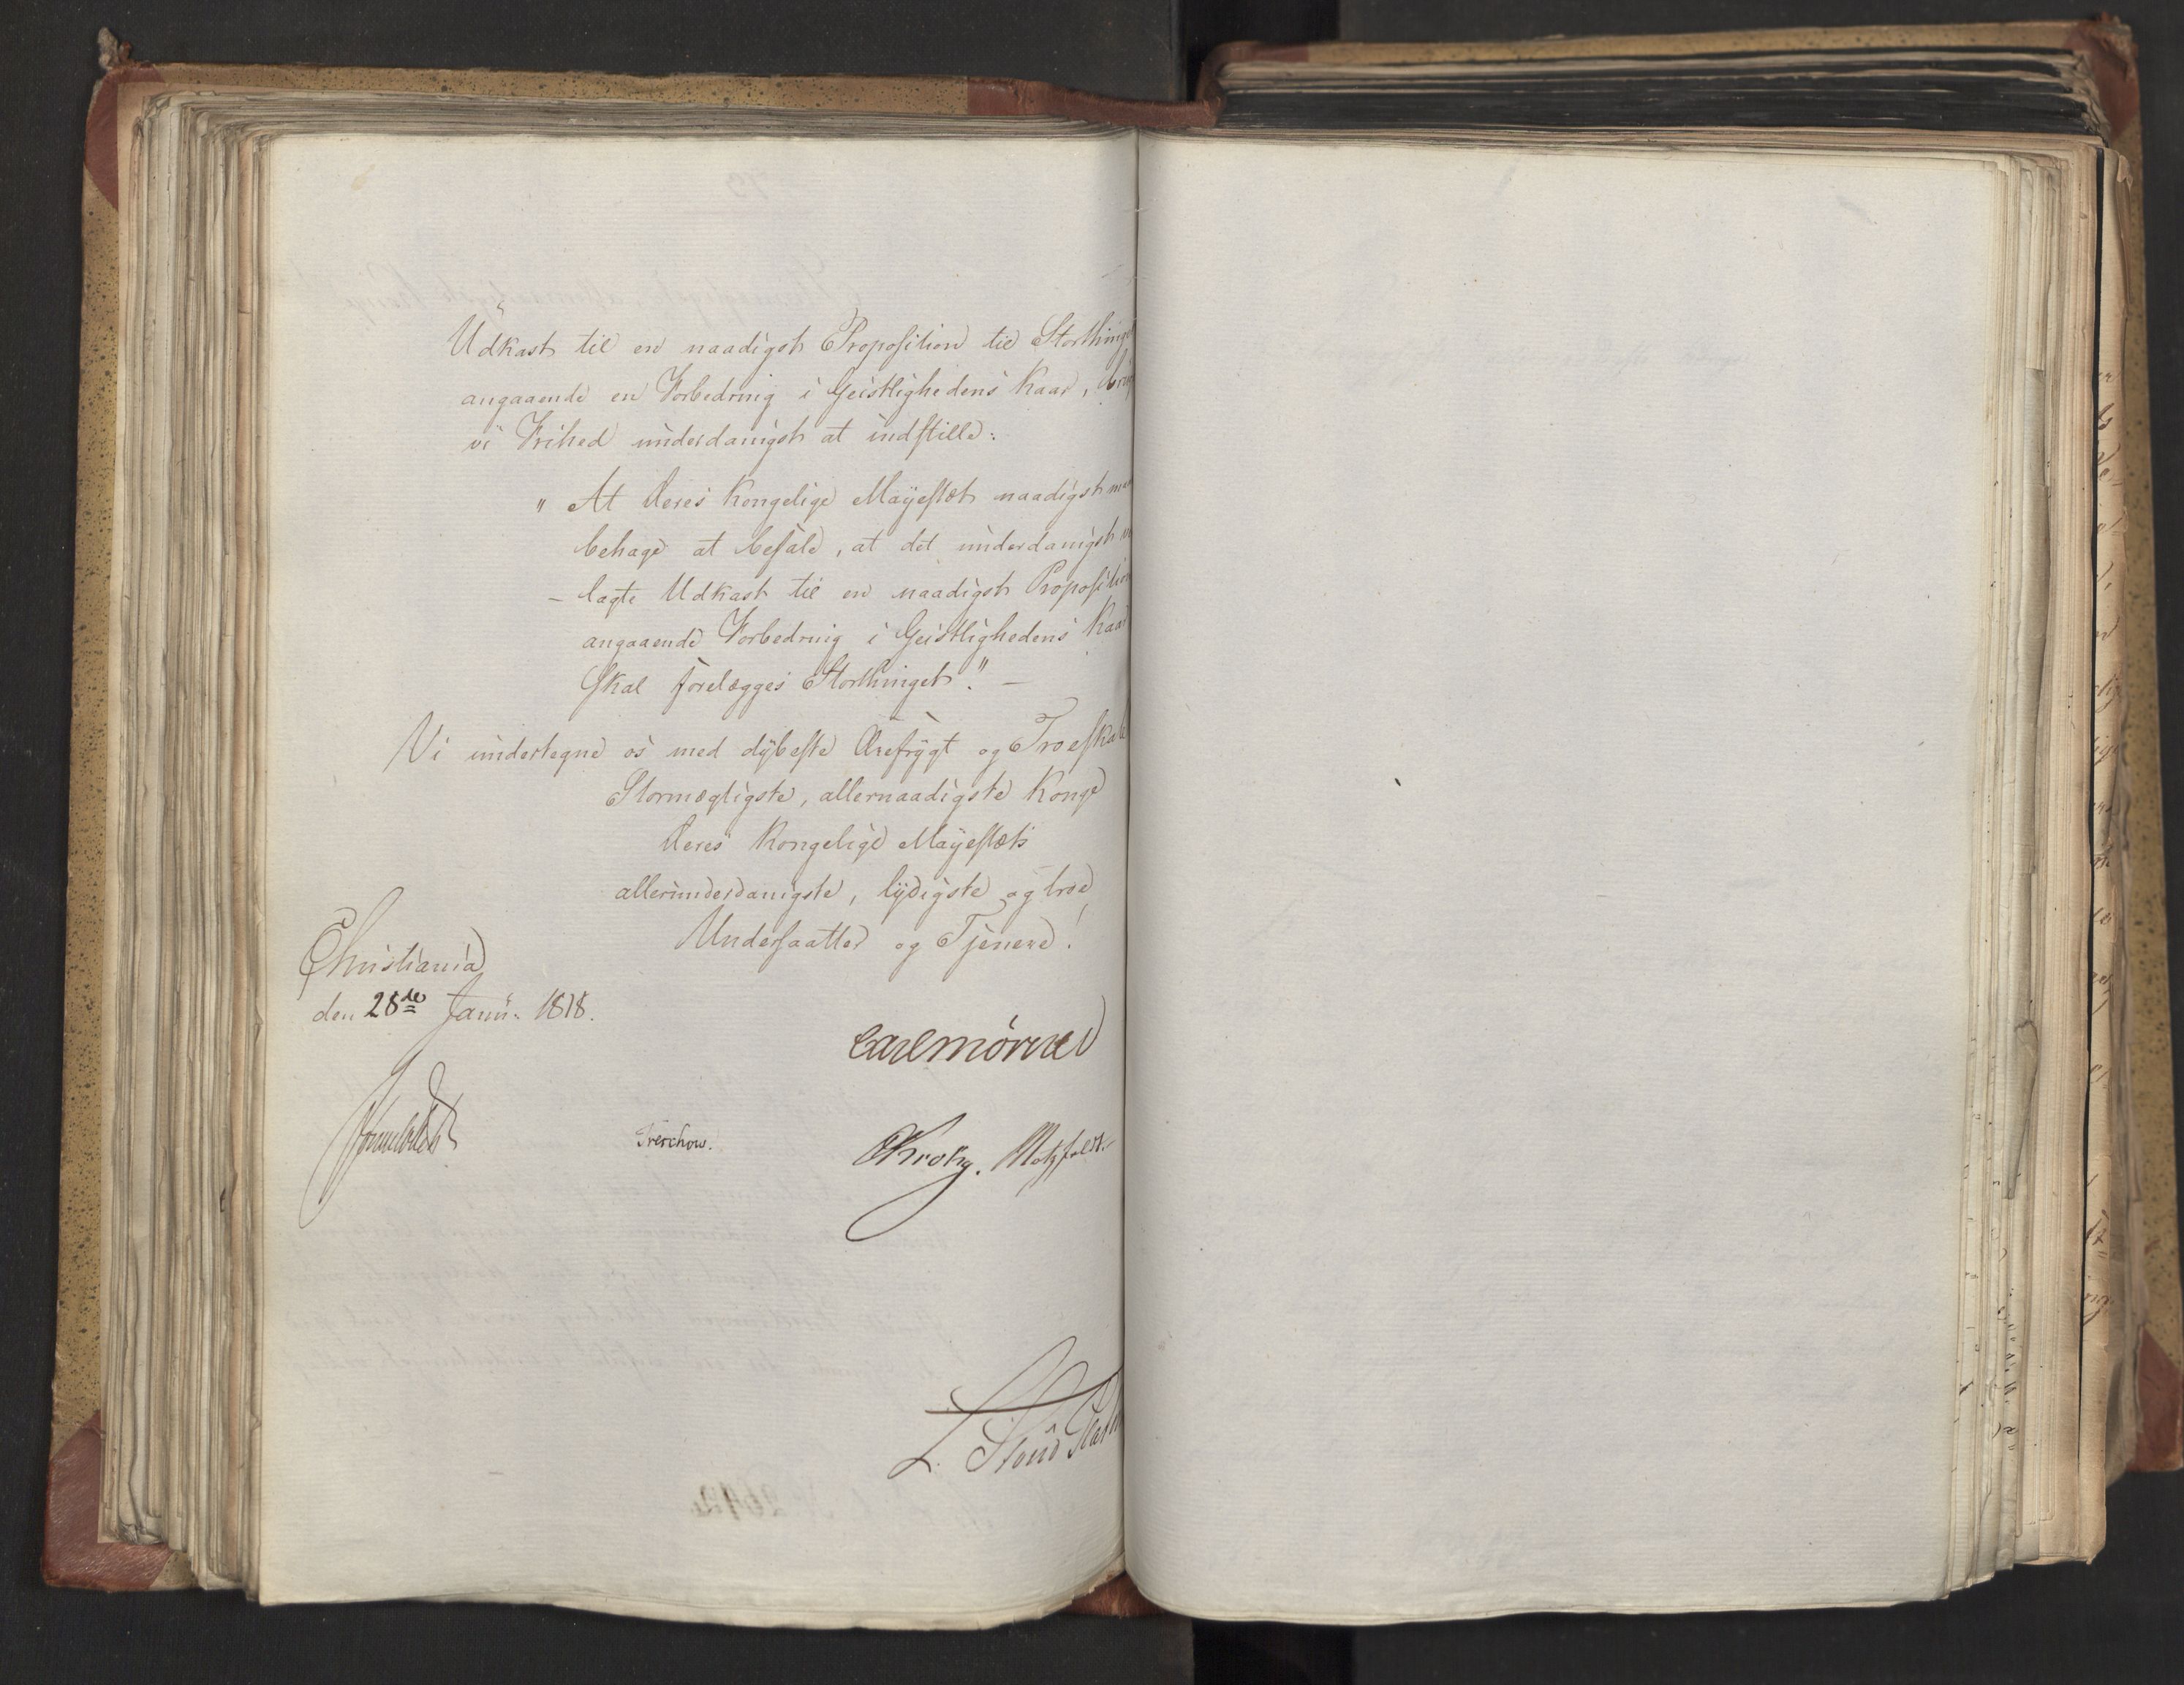 Udkast til en naadigst Proposition til Storthinget
angaaende en Forbedring i Geistlighedens Kaar,
vi Frihed underdanigst at indstille:
" At Deres Kongelige Mayestæt naadigst maa
behage at befale, at det underdanigst
- lagte Udkast til en naadigst Proposition
angaaende Forbedring i Geistlighedens Kaar
skal forelægges Storthinget." -
Vi undertegne os med dybeste Ærefrygt og Troeskab
Stormægtigste, allernaadigste Konge
Deres Kongelige Mayestæts
allerunderdanigste, lydigste og troe
Undersaatter og Tjenere!
Christiania
den 28de Janu: 1818.
Carl Mörner
Sommerhielm
Treschow.
CKrohg. Motzfeldt.
L. Stoud Platou